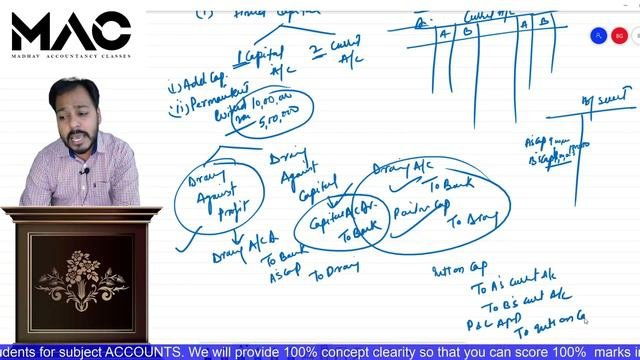 MAC
MADHAV ACCOUNTANCY CLASSES
(i)
1 Capital A/c
2 Current A/c
i) Add Cap.
ii) Permanent
10,00,000
5,00,000
Current A/c
A B A B
B/Sheet
Drawing Against Profit
Drawing Against Capital
Drawing A/c
To Bank
To Drawing
Capital A/c Dr.
To Bank
Drawing A/c
To Bank
To Drawing
Int on Cap
To A's Current A/c
To B's Current A/c
P & L App
To Int on C
BG
udents for subject ACCOUNTS. We will provide 100% concept clearity so that you can score 100% marks i